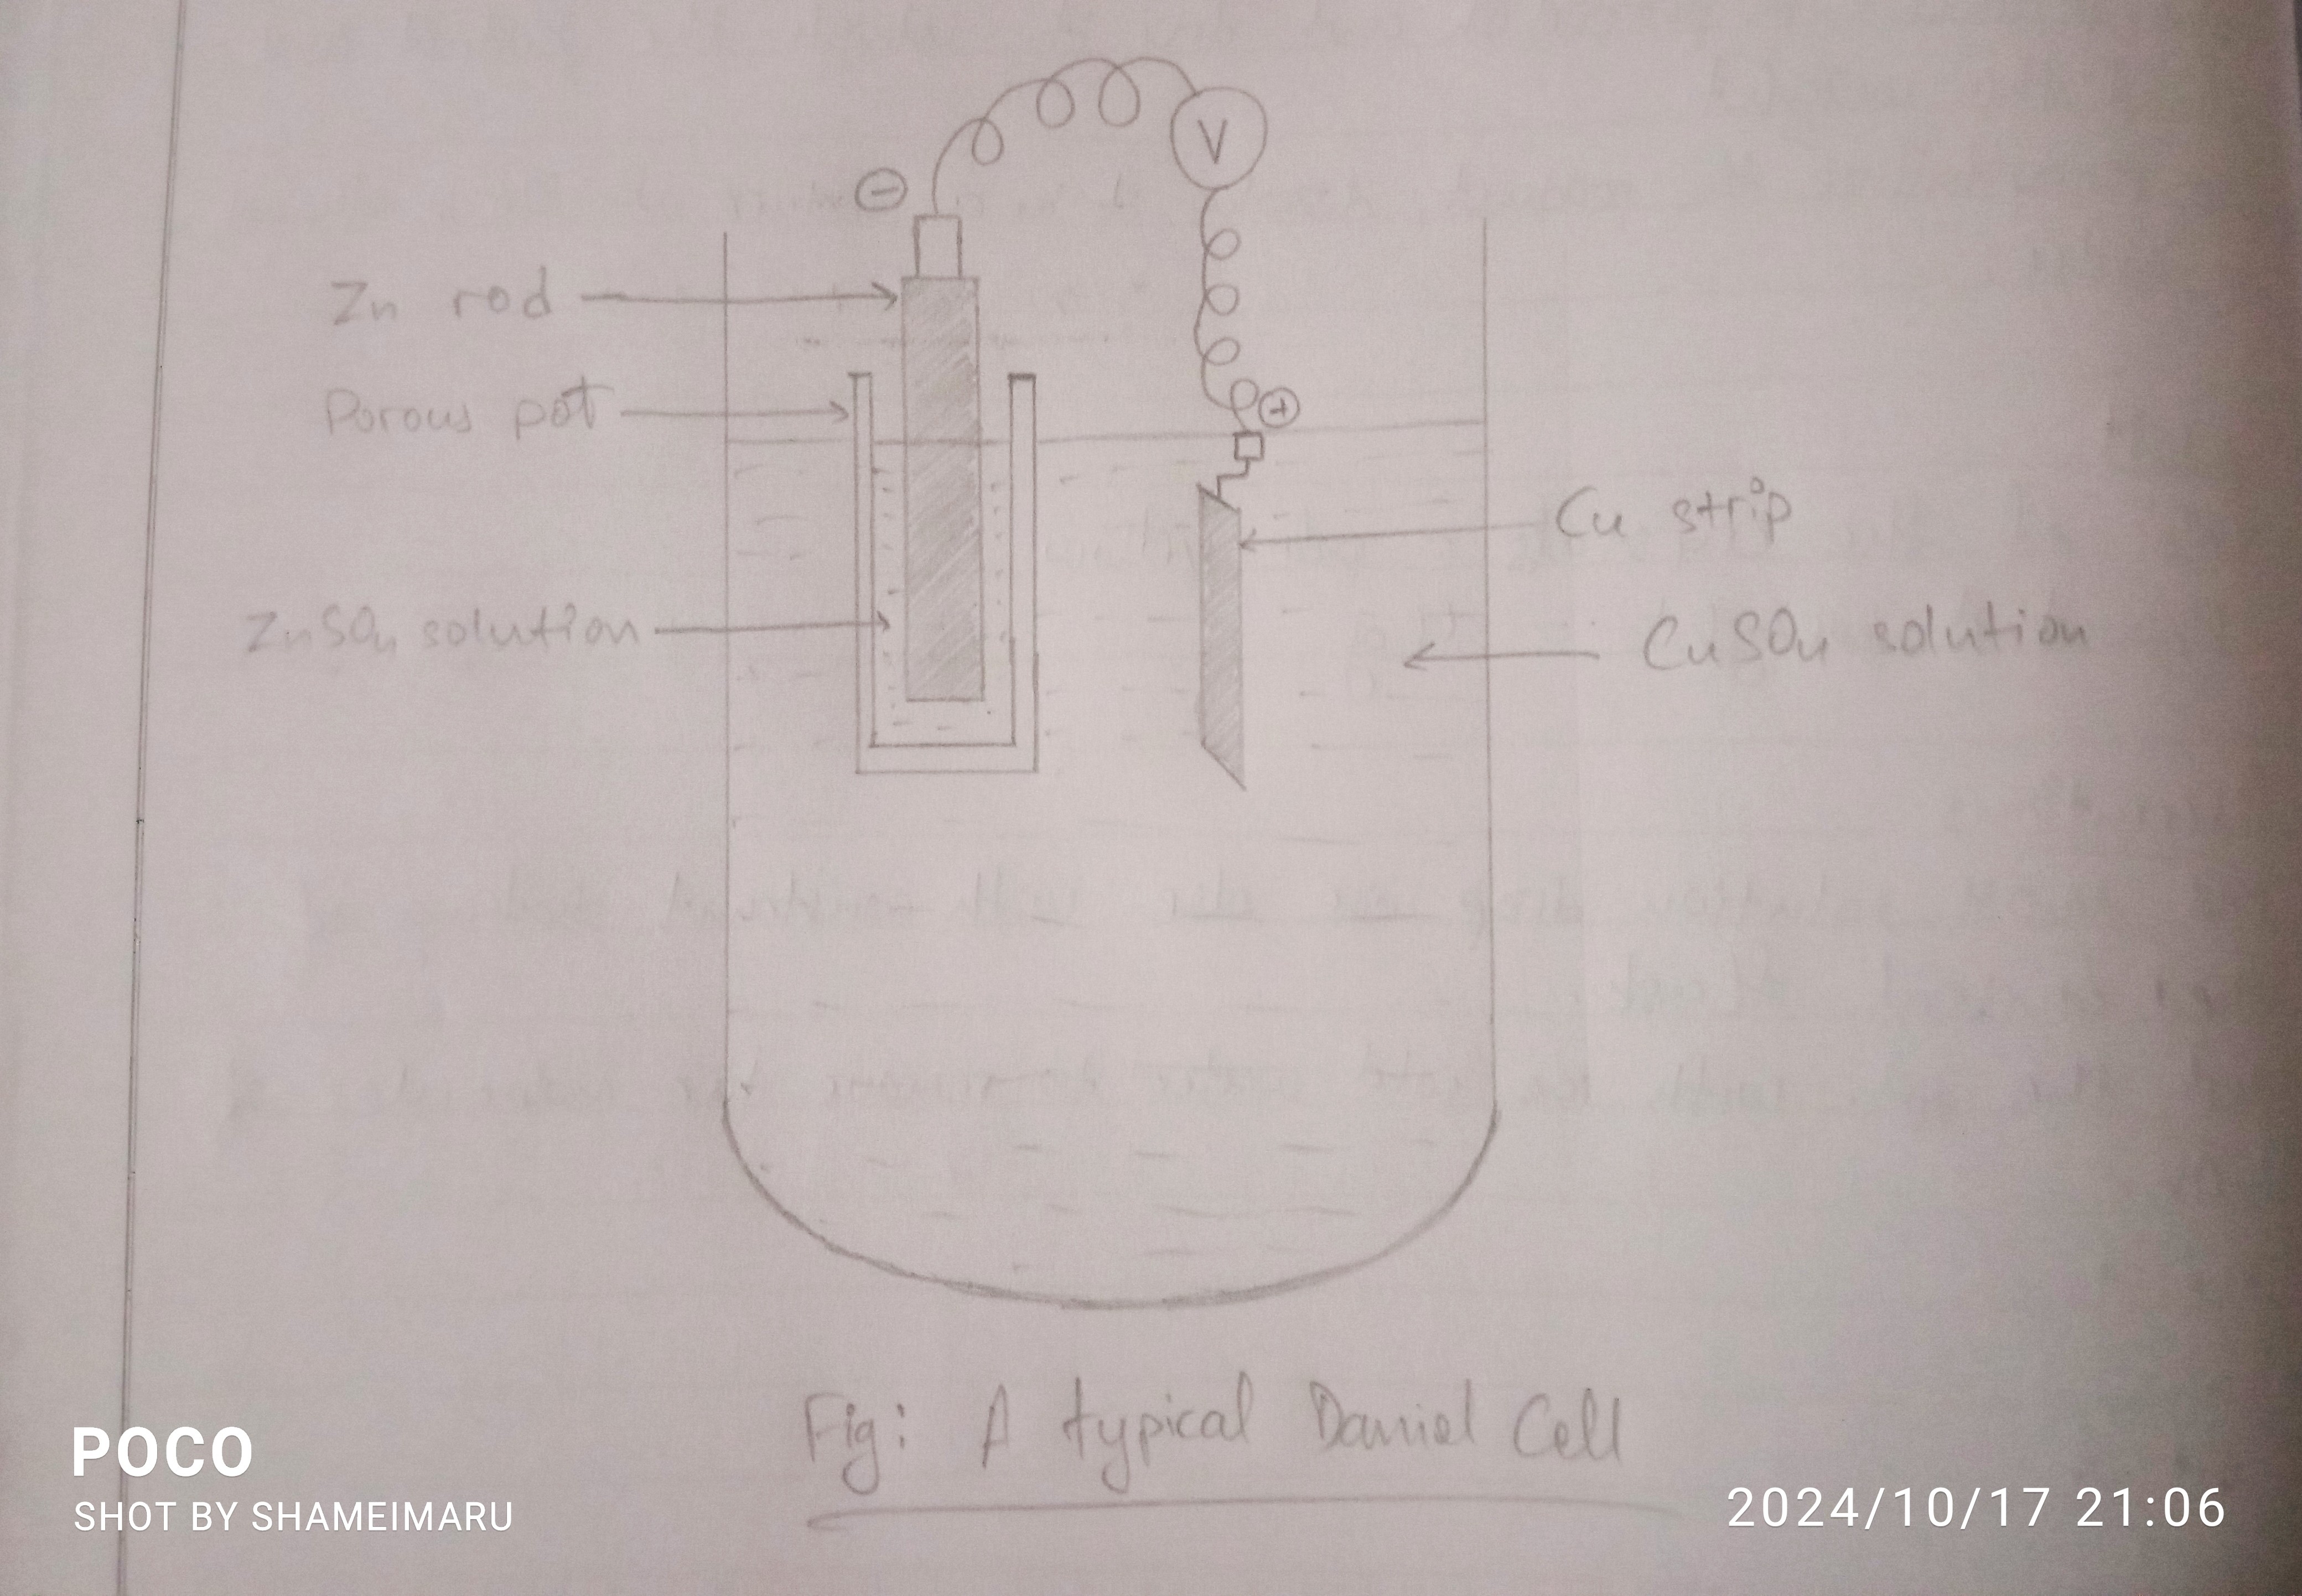 V
⊖
Zn rod
Porous pot
⊕
Cu strip
ZnSO4 solution
CuSO4 solution
Fig: A typical Daniel Cell
POCO
SHOT BY SHAMEIMARU
2024/10/17 21:06